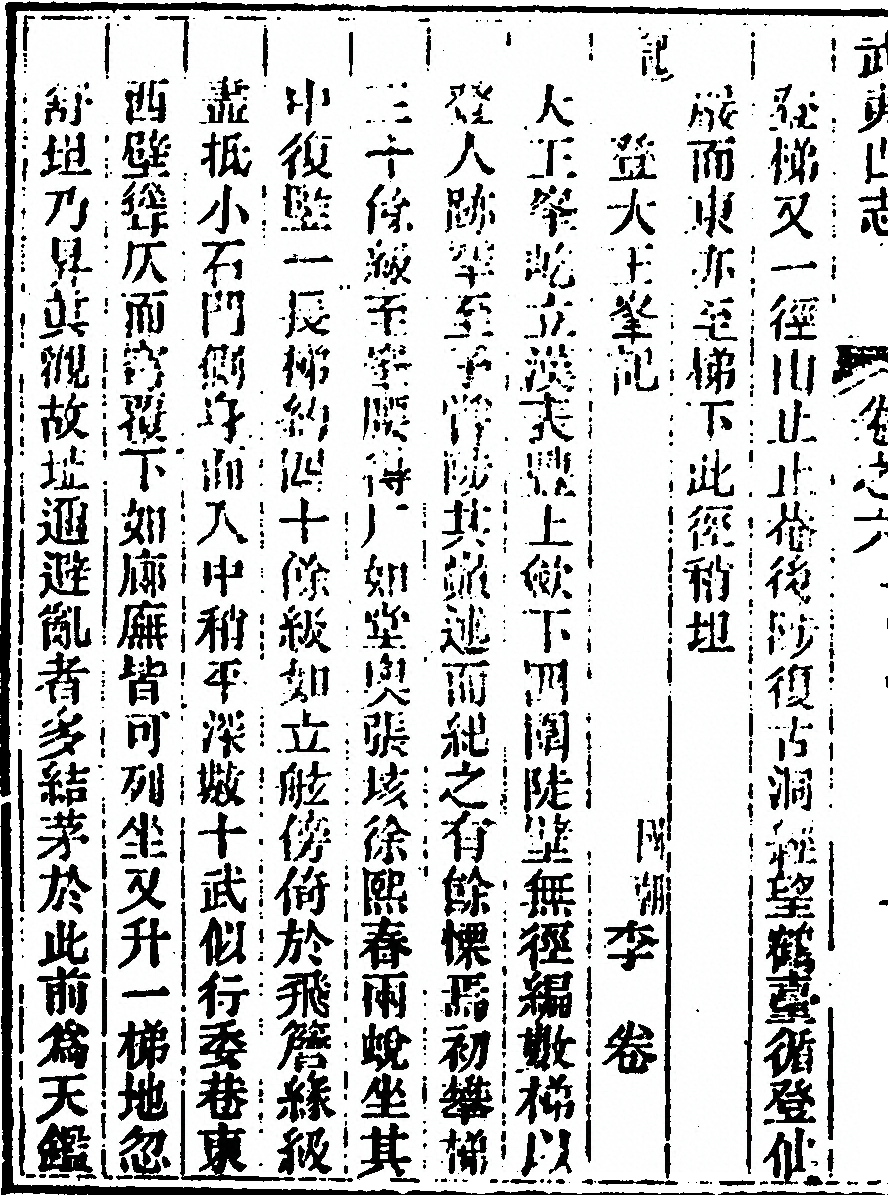 武夷山志 卷之六
登梯又一徑由止止菴後陟復古洞經望鶴臺循登仙
巖而東亦至梯下此徑稍坦
記
登大王峯記 國朝 李卷
大王峯屹立溪表豐上斂下四圍陡壁無徑編數梯以
登人跡罕至予嘗陟其巔述而紀之有餘慄焉初攀梯
三十餘級至峯腰得厂如堂奧張垓徐熙春兩蛻坐其
中復豎一長梯約四十餘級如立舷傍倚於飛簷緣級
盡抵小石門側身而入中稍平深數十武似行委巷東
西壁聳仄而窅覆下如廊廡皆可列坐又升一梯地忽
舒坦乃昇真觀故址迴避亂者多結茅於此前為天鑑